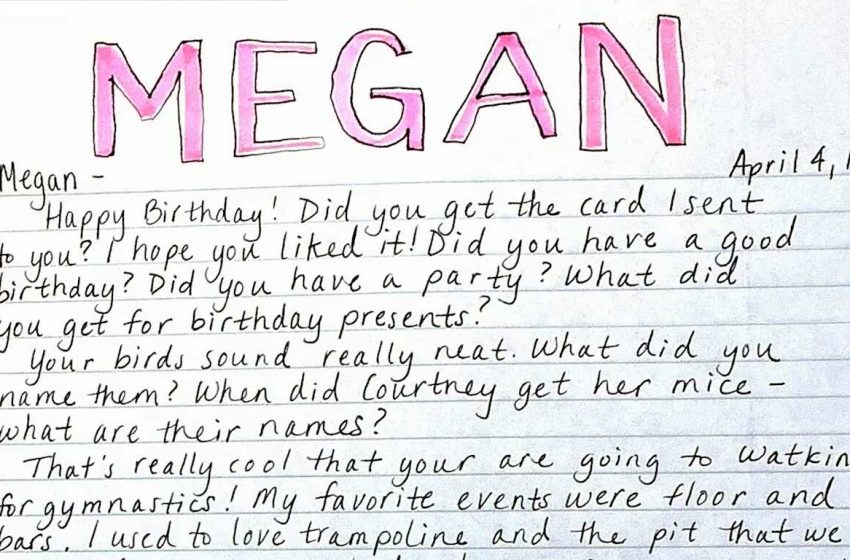 MEGAN
Megan -
April 4, 1
Happy Birthday! Did you get the card I sent
to you? I hope you liked it! Did you have a good
birthday? Did you have a party? What did
you get for birthday presents?
Your birds sound really neat. What did you
name them? When did Courtney get her mice -
what are their names?
That's really cool that your are going to Watkin
for gymnastics! My favorite events were floor and
bars. I used to love trampoline and the pit that we